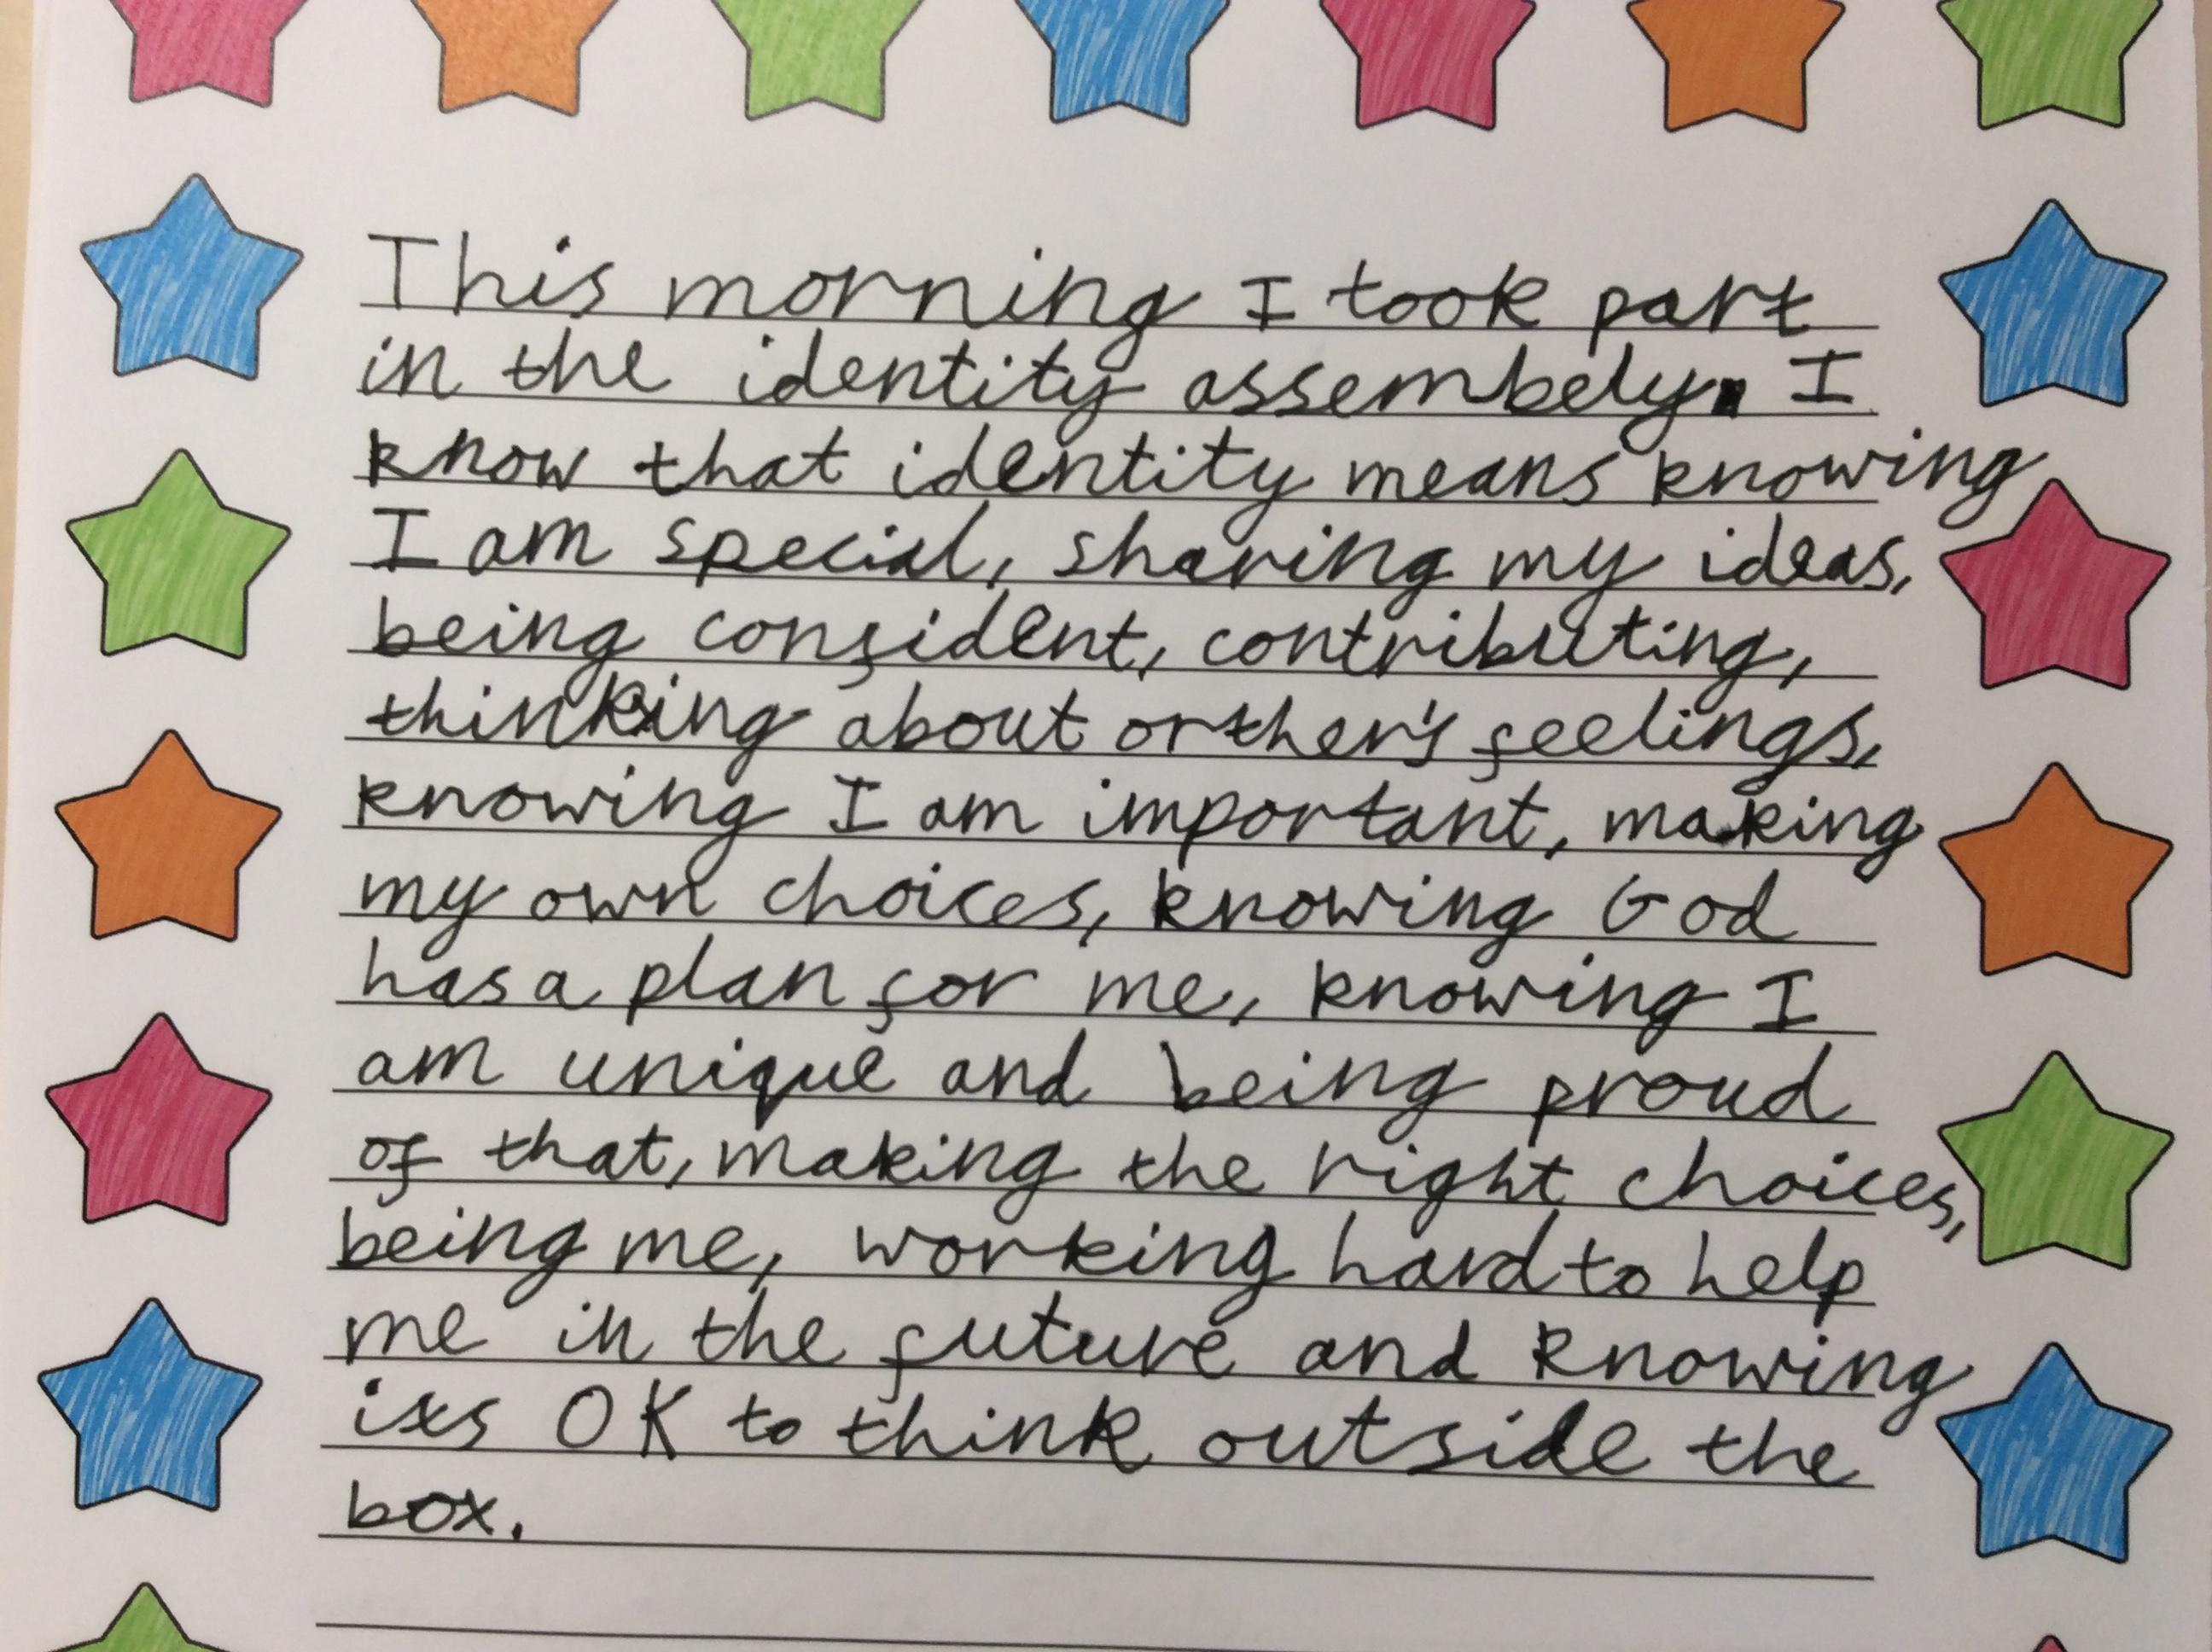 This morning I took part
in the identity assembely. I
know that identity means knowing
I am special, sharing my ideas,
being confident, contributing,
thinking about orther's feelings,
knowing I am important, making
my own choices, knowing God
has a plan for me, knowing I
am unique and being proud
of that, making the right choices,
being me, working hard to help
me in the future and knowing
its OK to think outside the
box.